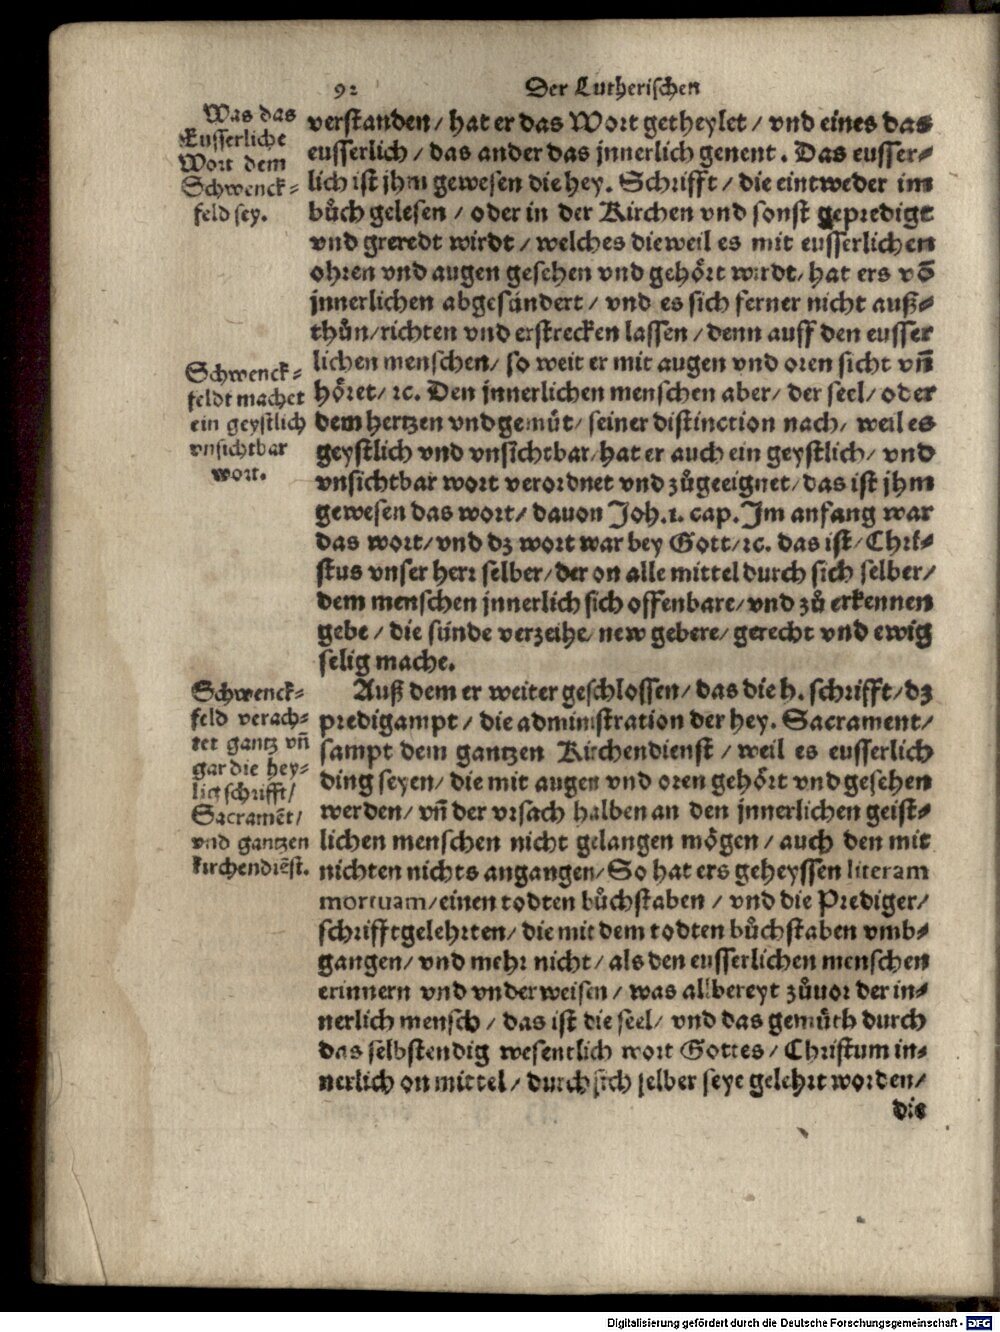 92
Der Lutherischen
Was das
Eusserliche
Wort dem
Schwenck-
feld sey.
verstanden / hat er das Wort getheylet / vnd eines das
eusserlich / das ander das jnnerlich genent. Das eusser-
lich ist jhm gewesen die hey. Schrifft / die eintweder im
bůch gelesen / oder in der Kirchen vnd sonst gepredigt
vnd greredt wirdt / welches dieweil es mit eusserlichen
ohren vnd augen gesehen vnd gehört wirdt / hat ers võ
jnnerlichen abgesündert / vnd es sich ferner nicht auß-
thůn / richten vnd erstrecken lassen / denn auff den eusser
lichen menschen / so weit er mit augen vnd oren sicht vñ
höret / ꝛc. Den jnnerlichen menschen aber / der seel / oder
dem hertzen vnd gemüt / seiner distinction nach / weil es
geystlich vnd vnsichtbar / hat er auch ein geystlich / vnd
vnsichtbar wort verordnet vnd zůgeeignet / das ist jhm
gewesen das wort / dauon Joh. 1. cap. Jm anfang war
das wort / vnd dz wort war bey Gott / ꝛc. das ist / Chri-
stus vnser herr selber / der on alle mittel durch sich selber /
dem menschen jnnerlich sich offenbare / vnd zů erkennen
gebe / die sünde verzeihe / new gebere / gerecht vnd ewig
selig mache.
Schwenck-
feldt machet
ein geystlich
vnsichtbar
wort.
Auß dem er weiter geschlossen / das die h. schrifft / dz
predigampt / die administration der hey. Sacrament /
sampt dem gantzen Kirchendienst / weil es eusserlich
ding seyen / die mit augen vnd oren gehört vnd gesehen
werden / vñ der vrsach halben an den jnnerlichen geist-
lichen menschen nicht gelangen mögen / auch den mit
nichten nichts angangen / So hat ers geheyssen literam
mortuam / einen todten bůchstaben / vnd die Prediger /
schrifftgelehrten / die mit dem todten bůchstaben vmb-
gangen / vnd mehr nicht / als den eusserlichen menschen
erinnern vnd vnderweisen / was allbereyt zůuor der in-
nerlich mensch / das ist die seel / vnd das gemüth durch
das selbstendig wesentlich wort Gottes / Christum in-
nerlich on mittel / durch sich selber seye gelehrt worden /
Schwenck-
feld verach-
tet gantz vñ
gar die hey-
lig schrifft /
Sacramẽt /
vnd gantzen
kirchendiẽst.
die
Digitalisierung gefördert durch die Deutsche Forschungsgemeinschaft - DFG